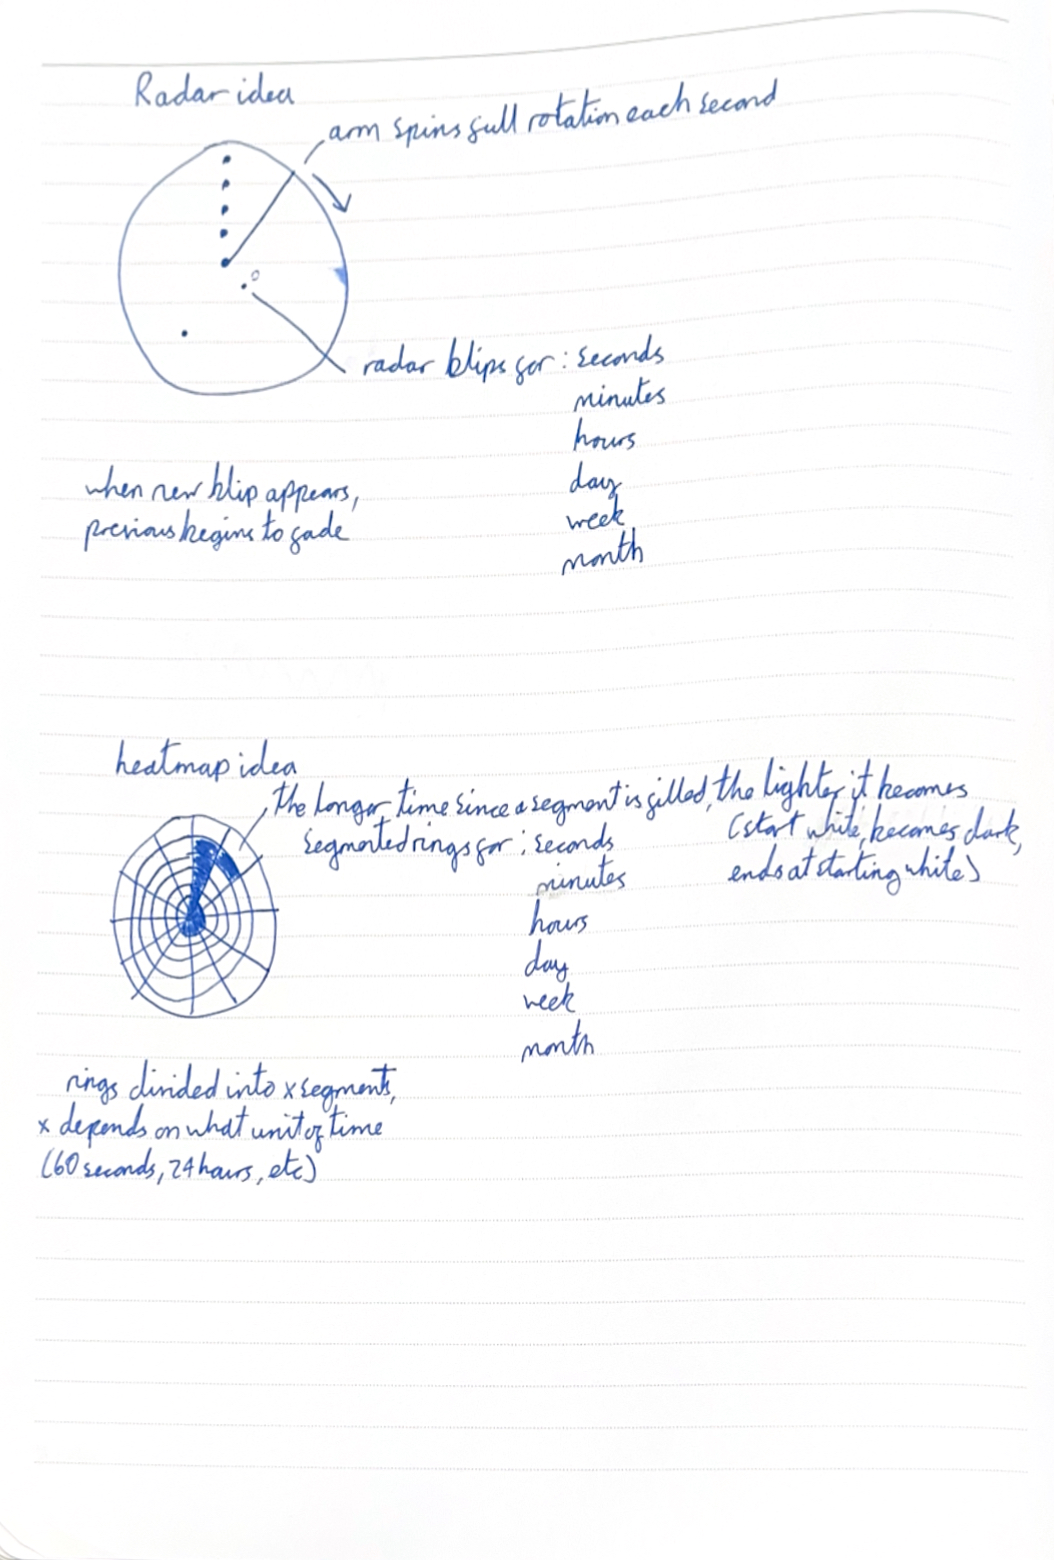 Radar idea
arm spins full rotation each second
radar blips for: seconds
minutes
hours
day
week
month
when new blip appears,
previous begins to fade
heatmap idea
the longer time since a segment is filled, the lighter it becomes
(start white, becomes dark,
ends at starting white)
segmented rings for: seconds
minutes
hours
day
week
month
rings divided into x segments,
x depends on what unit of time
(60 seconds, 24 hours, etc)